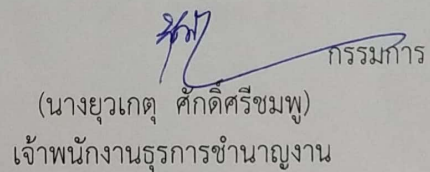 กรรมการ
(นางยุวเกตุ ศักดิ์ศรีชมพู)
เจ้าพนักงานธุรการชำนาญงาน